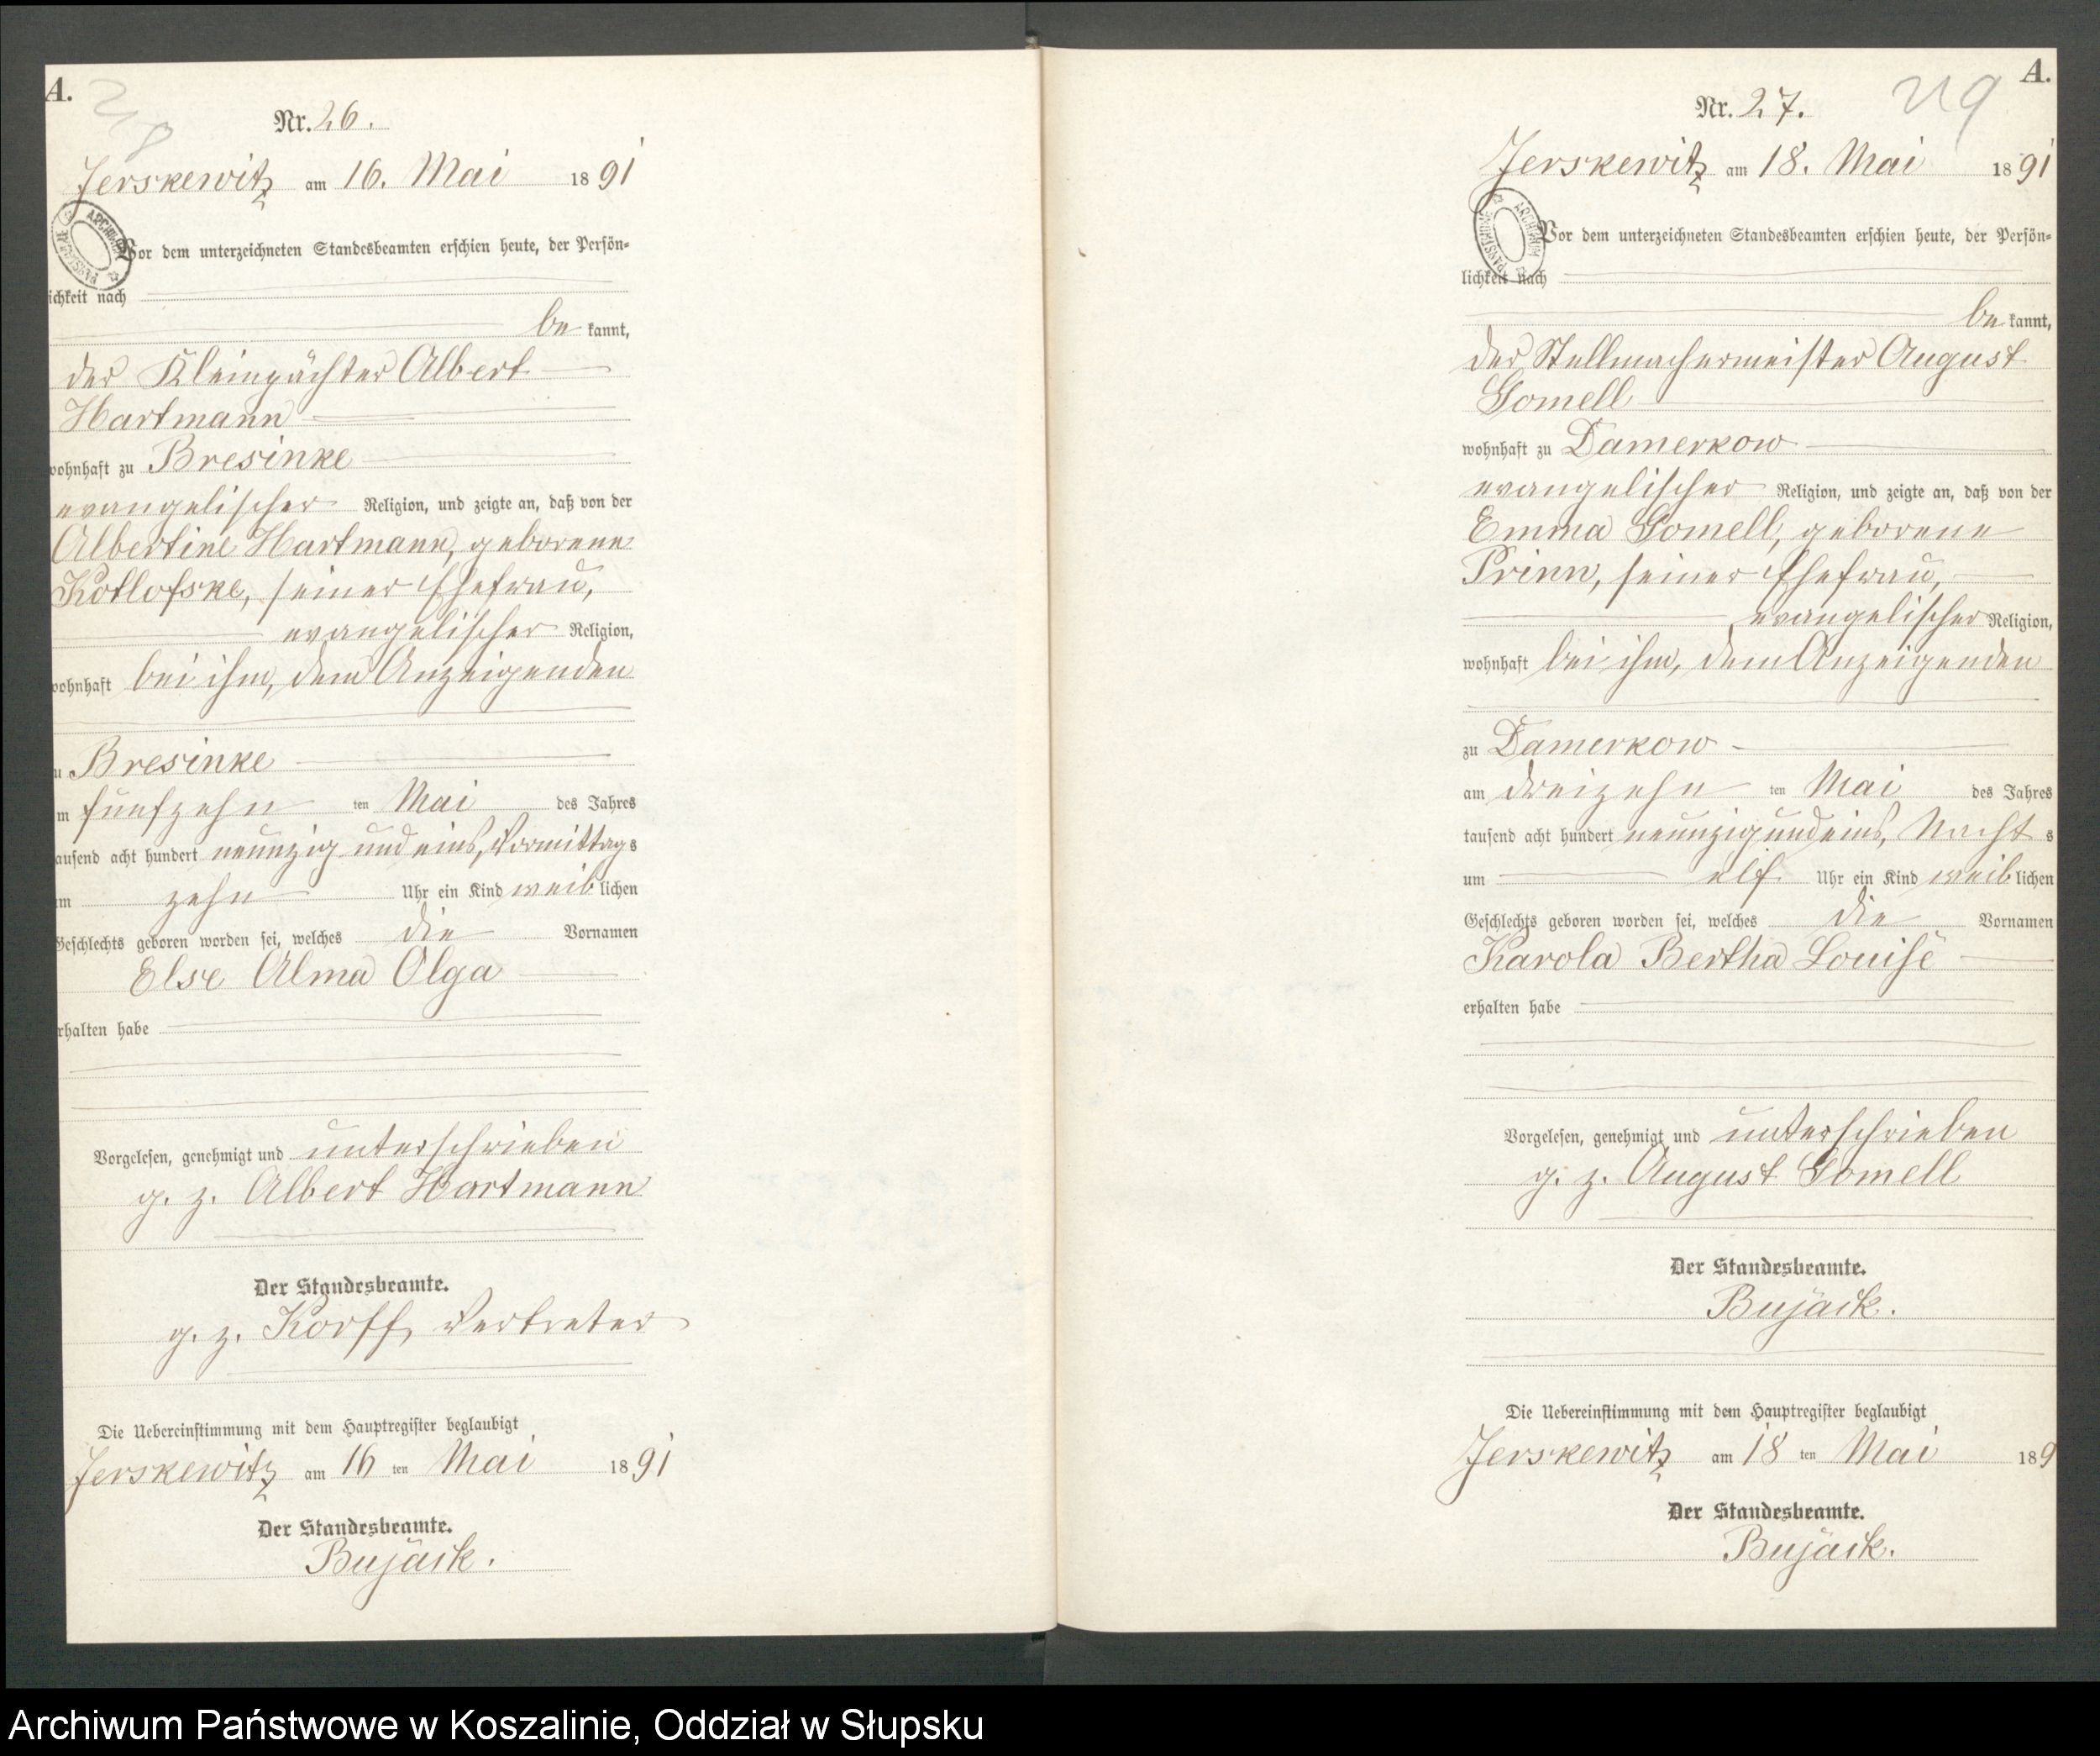 A.
Nr. 26.
Jerskewitz am 16. Mai 1891
Vor dem unterzeichneten Standesbeamten erschien heute, der Persön-
lichkeit nach
be kannt,
der Kleinpächter Albert
Hartmann
wohnhaft zu Bresinke
evangelischer Religion, und zeigte an, daß von der
Albertine Hartmann, geborene
Kotlofske, seiner Ehefrau,
evangelischer Religion,
wohnhaft bei ihm, dem Anzeigenden
zu Bresinke
am fünfzehn ten Mai des Jahres
tausend acht hundert neunzig und eins, Vormittags
um zehn Uhr ein Kind weiblichen
Geschlechts geboren worden sei, welches die Vornamen
Else Alma Olga
erhalten habe
Vorgelesen, genehmigt und unterschrieben
g. z. Albert Hartmann
Der Standesbeamte.
g. z. Korff, Vertreter
Die Uebereinstimmung mit dem Hauptregister beglaubigt
Jerskewitz am 16 ten Mai 1891
Der Standesbeamte.
Bujack.
A.
29
Nr. 27.
Jerskewitz am 18. Mai 1891
Vor dem unterzeichneten Standesbeamten erschien heute, der Persön-
lichkeit nach
be kannt,
der Stellmachermeister August
Gomell
wohnhaft zu Damerkow
evangelischer Religion, und zeigte an, daß von der
Emma Gomell, geborene
Prinn, seiner Ehefrau,
evangelischer Religion,
wohnhaft bei ihm, dem Anzeigenden
zu Damerkow
am dreizehn ten Mai des Jahres
tausend acht hundert neunzig und eins, Nachts
um elf Uhr ein Kind weiblichen
Geschlechts geboren worden sei, welches die Vornamen
Karola Bertha Louise
erhalten habe
Vorgelesen, genehmigt und unterschrieben
g. z. August Gomell
Der Standesbeamte.
Bujack.
Die Uebereinstimmung mit dem Hauptregister beglaubigt
Jerskewitz am 18 ten Mai 189
Der Standesbeamte.
Bujack.
Archiwum Państwowe w Koszalinie, Oddział w Słupsku